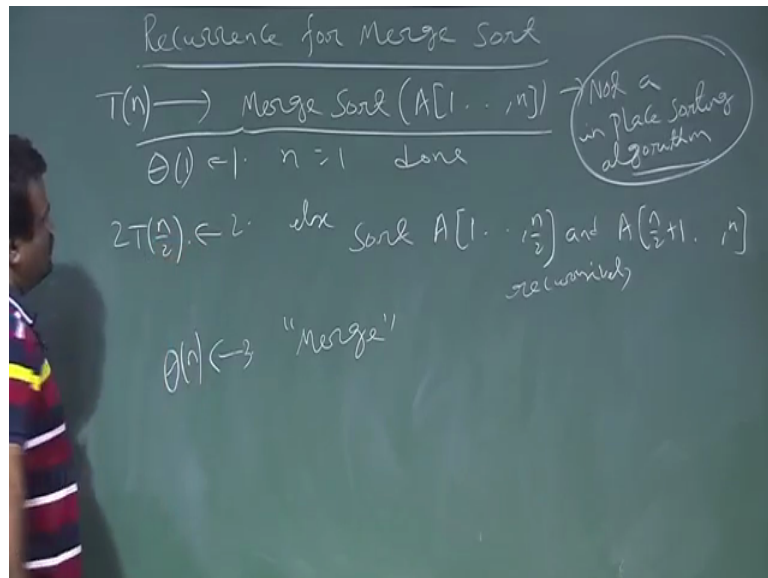 Recurrence for Merge Sort
T(n) → Merge Sort (A[1 . . , n]) → Not a
in place sorting
algorithm
Θ(1) ← 1. n = 1 done
2T(n/2) ← 2. else sort A[1 . . , n/2] and A[n/2+1 . , n]
recursively
Θ(n) ← 3 "Merge"